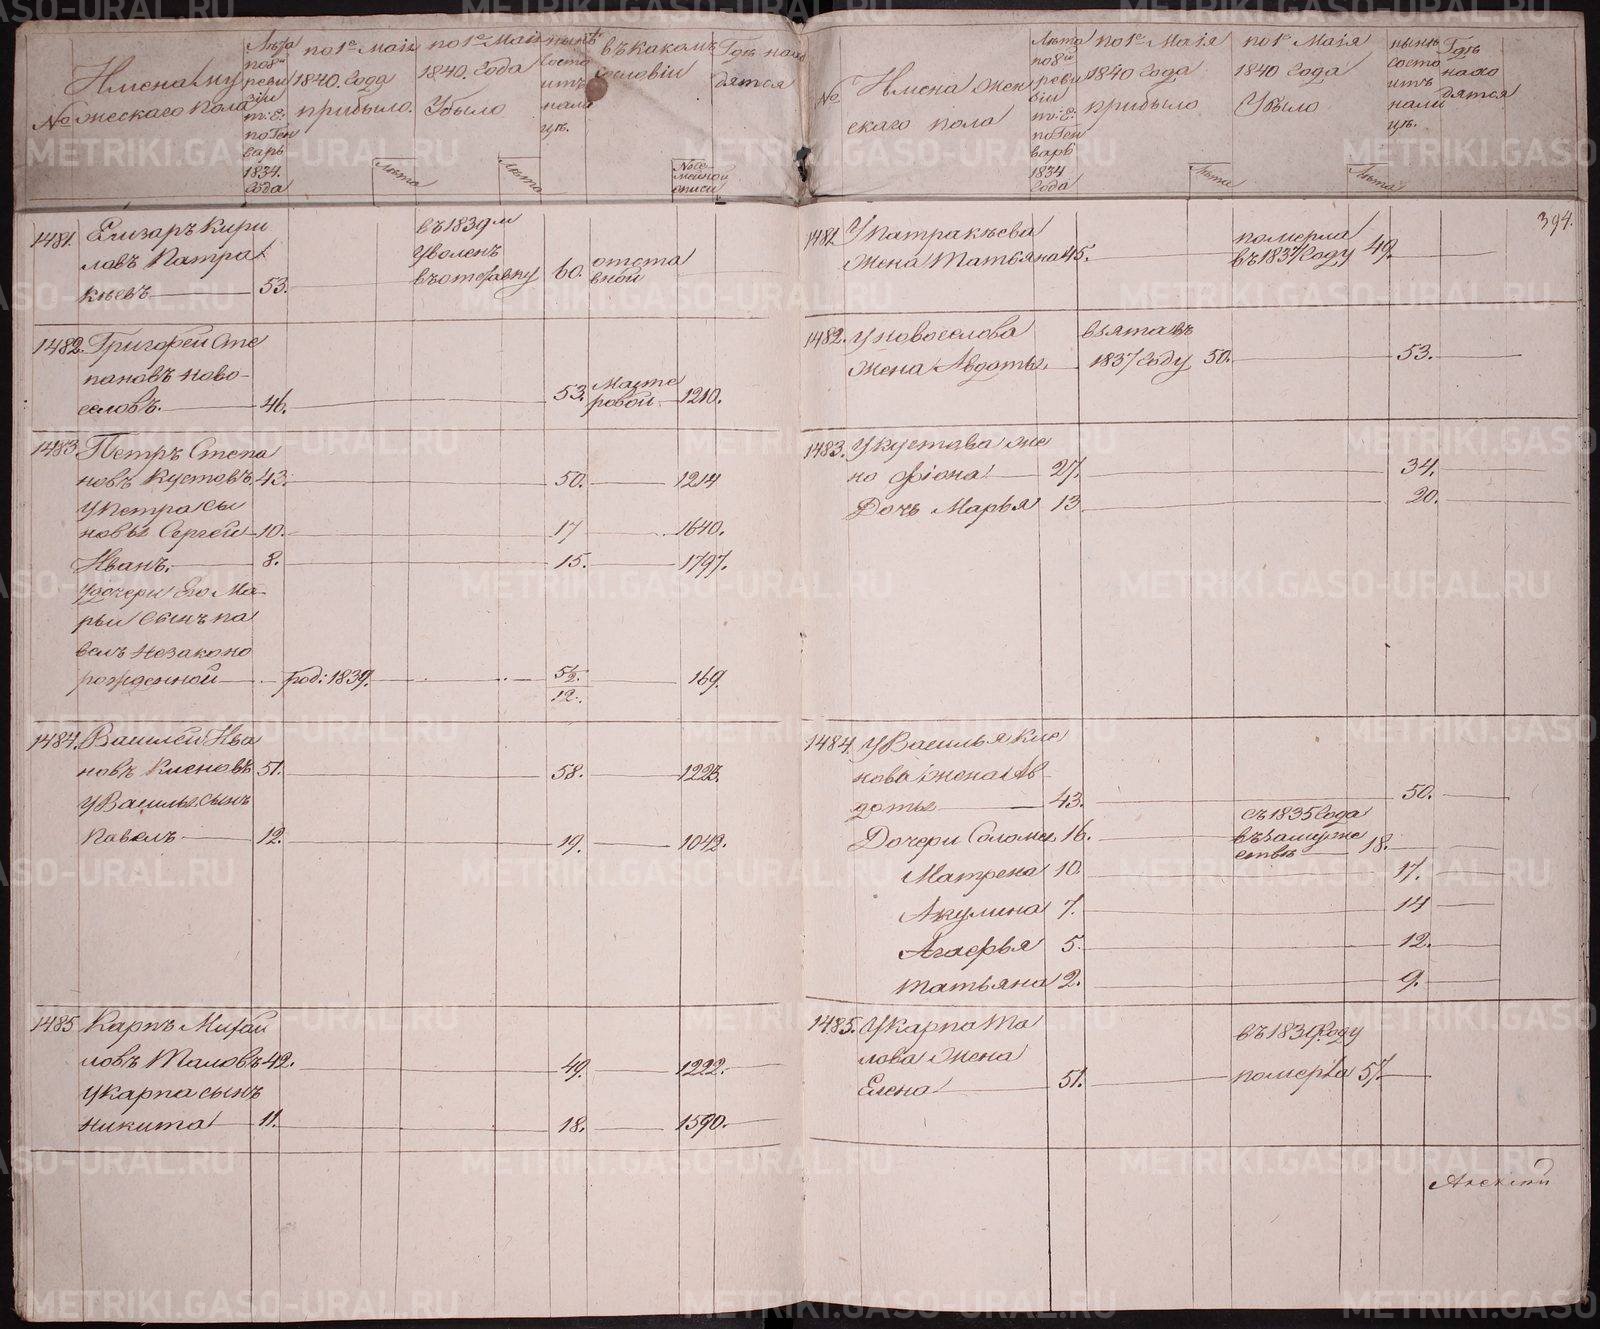 №
Имена му
жескаго пола
Лѣта
по 8й
реви
зіи
т: е:
по Ген
варь
1834.
Года
по 1е Маія
1840. Года
прибыло.
Лѣта
по 1е Маія
1840. Года
Убыло
Лѣта
нынѣ
состо
итъ
нали
цѣ.
въ какомъ
сословіи
№ се
мейной
описи
Гдѣ нахо
дятся
1481. Елизаръ Кири
ловъ Патра
кѣевъ 53.
въ 1839 м
уволенъ
въ отставку 60. отста
вной
1482. Григорей Сте
пановъ Ново-
селовъ. 46. 53. Масте
ровой 1210.
1483. Петръ Степа
новъ Кустовъ. 43. 50. 1214
у Петра сы
новья Сергей 10. 17 1640.
Иванъ. 8. 15. 1797.
у дочери Его Ма-
рьи сынъ Па
велъ незаконо
рожденной род: 1839. 5½. 169.
12.
1484. Василей Ива
новъ Кленовъ 51. 58. 1223.
у Василья сынъ
Павелъ 12. 19. 1042.
1485 Карпъ Михай
ловъ Таловъ 42. 49. 1222.
у Карпа сынъ
Никита 11. 18. 1590.
№
Имена жен
скаго пола
Лѣта
по 8й
реви
зіи
т: е:
по Ген
варь
1834
Года
по 1е Маія
1840 Года
прибыло
Лѣта
по 1е Маія
1840 Года
Убыло
Лѣта
нынѣ
состо
итъ
нали
цѣ.
Гдѣ
нахо
дятся
394.
1481 У Патракѣева
жена Татьяна 45. померла
въ 1837 Году 49.
1482. у Новоселова
жена Авдотья. взята въ
1837 Году 50. 53.
1483. У Кустова же
на Фіона 27. 34.
Дочь Марья 13. 20.
1484. у Василья Кле
нова жена Ав-
дотья 43. 50.
Дочери Соломея 16. съ 1835 Года
въ замуже
ствѣ 18.
Матрена 10. 17.
Акулина 7. 14
Агафья 5. 12.
Татьяна 2. 9.
1485. У Карпа Та
лова жена
Елена 51. въ 1839 Году
померла 57.
METRIKI.GASO-URAL.RU